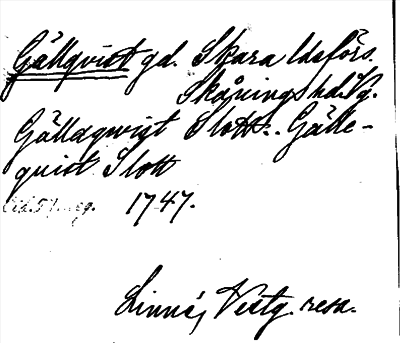 Gällqvist gd. Skara ldsförs.
Skånings hd. Vg.
Gälleqwist Slott.. Gälle-
quist Slott
1747.
Linné, Vestg. resa.